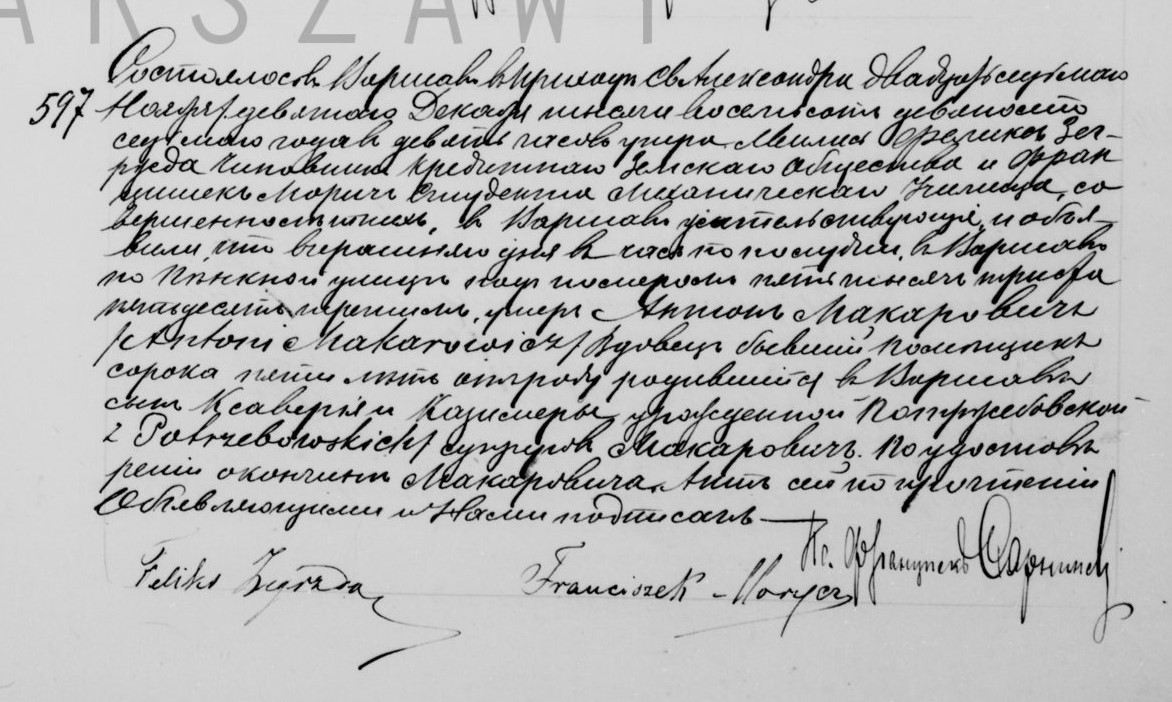 ARSZAWY
Состоялось въ Варшавѣ въ приходѣ Св. Александра двадцать седьмаго
597 Ноября / девятаго Декабря тысяча восемьсотъ девяносто
седьмаго года въ девять часовъ утра. Феликсъ Зег-
рзда чиновникъ Кредитнаго Земскаго Общества и Фран
цишекъ Морицъ студентъ Механическаго Училища, со
вершеннолѣтніе, въ Варшавѣ жительствующіе, и объя-
вили, что вчерашняго дня въ часъ по полудни, въ Варшавѣ
по Пенкной улицѣ подъ номеромъ пять тысячъ триста
пятьдесятъ третьимъ, умеръ Антонъ Макаровичъ
/Antoni Makarowicz/ вдовецъ бывшій помѣщикъ
сорока пяти лѣтъ отъ роду родившійся въ Варшавѣ
сынъ Ксаверія и Казимеры урожденной Потржебовской
z Potrzebowskich/ супруговъ Макаровичъ. По удостовѣ
реніи о кончинѣ Макаровича. Актъ сей по прочтеніи
Объявляющими и Нами подписанъ
Кс. Францискъ
Feliks Zgórzda Franciszek Moryc